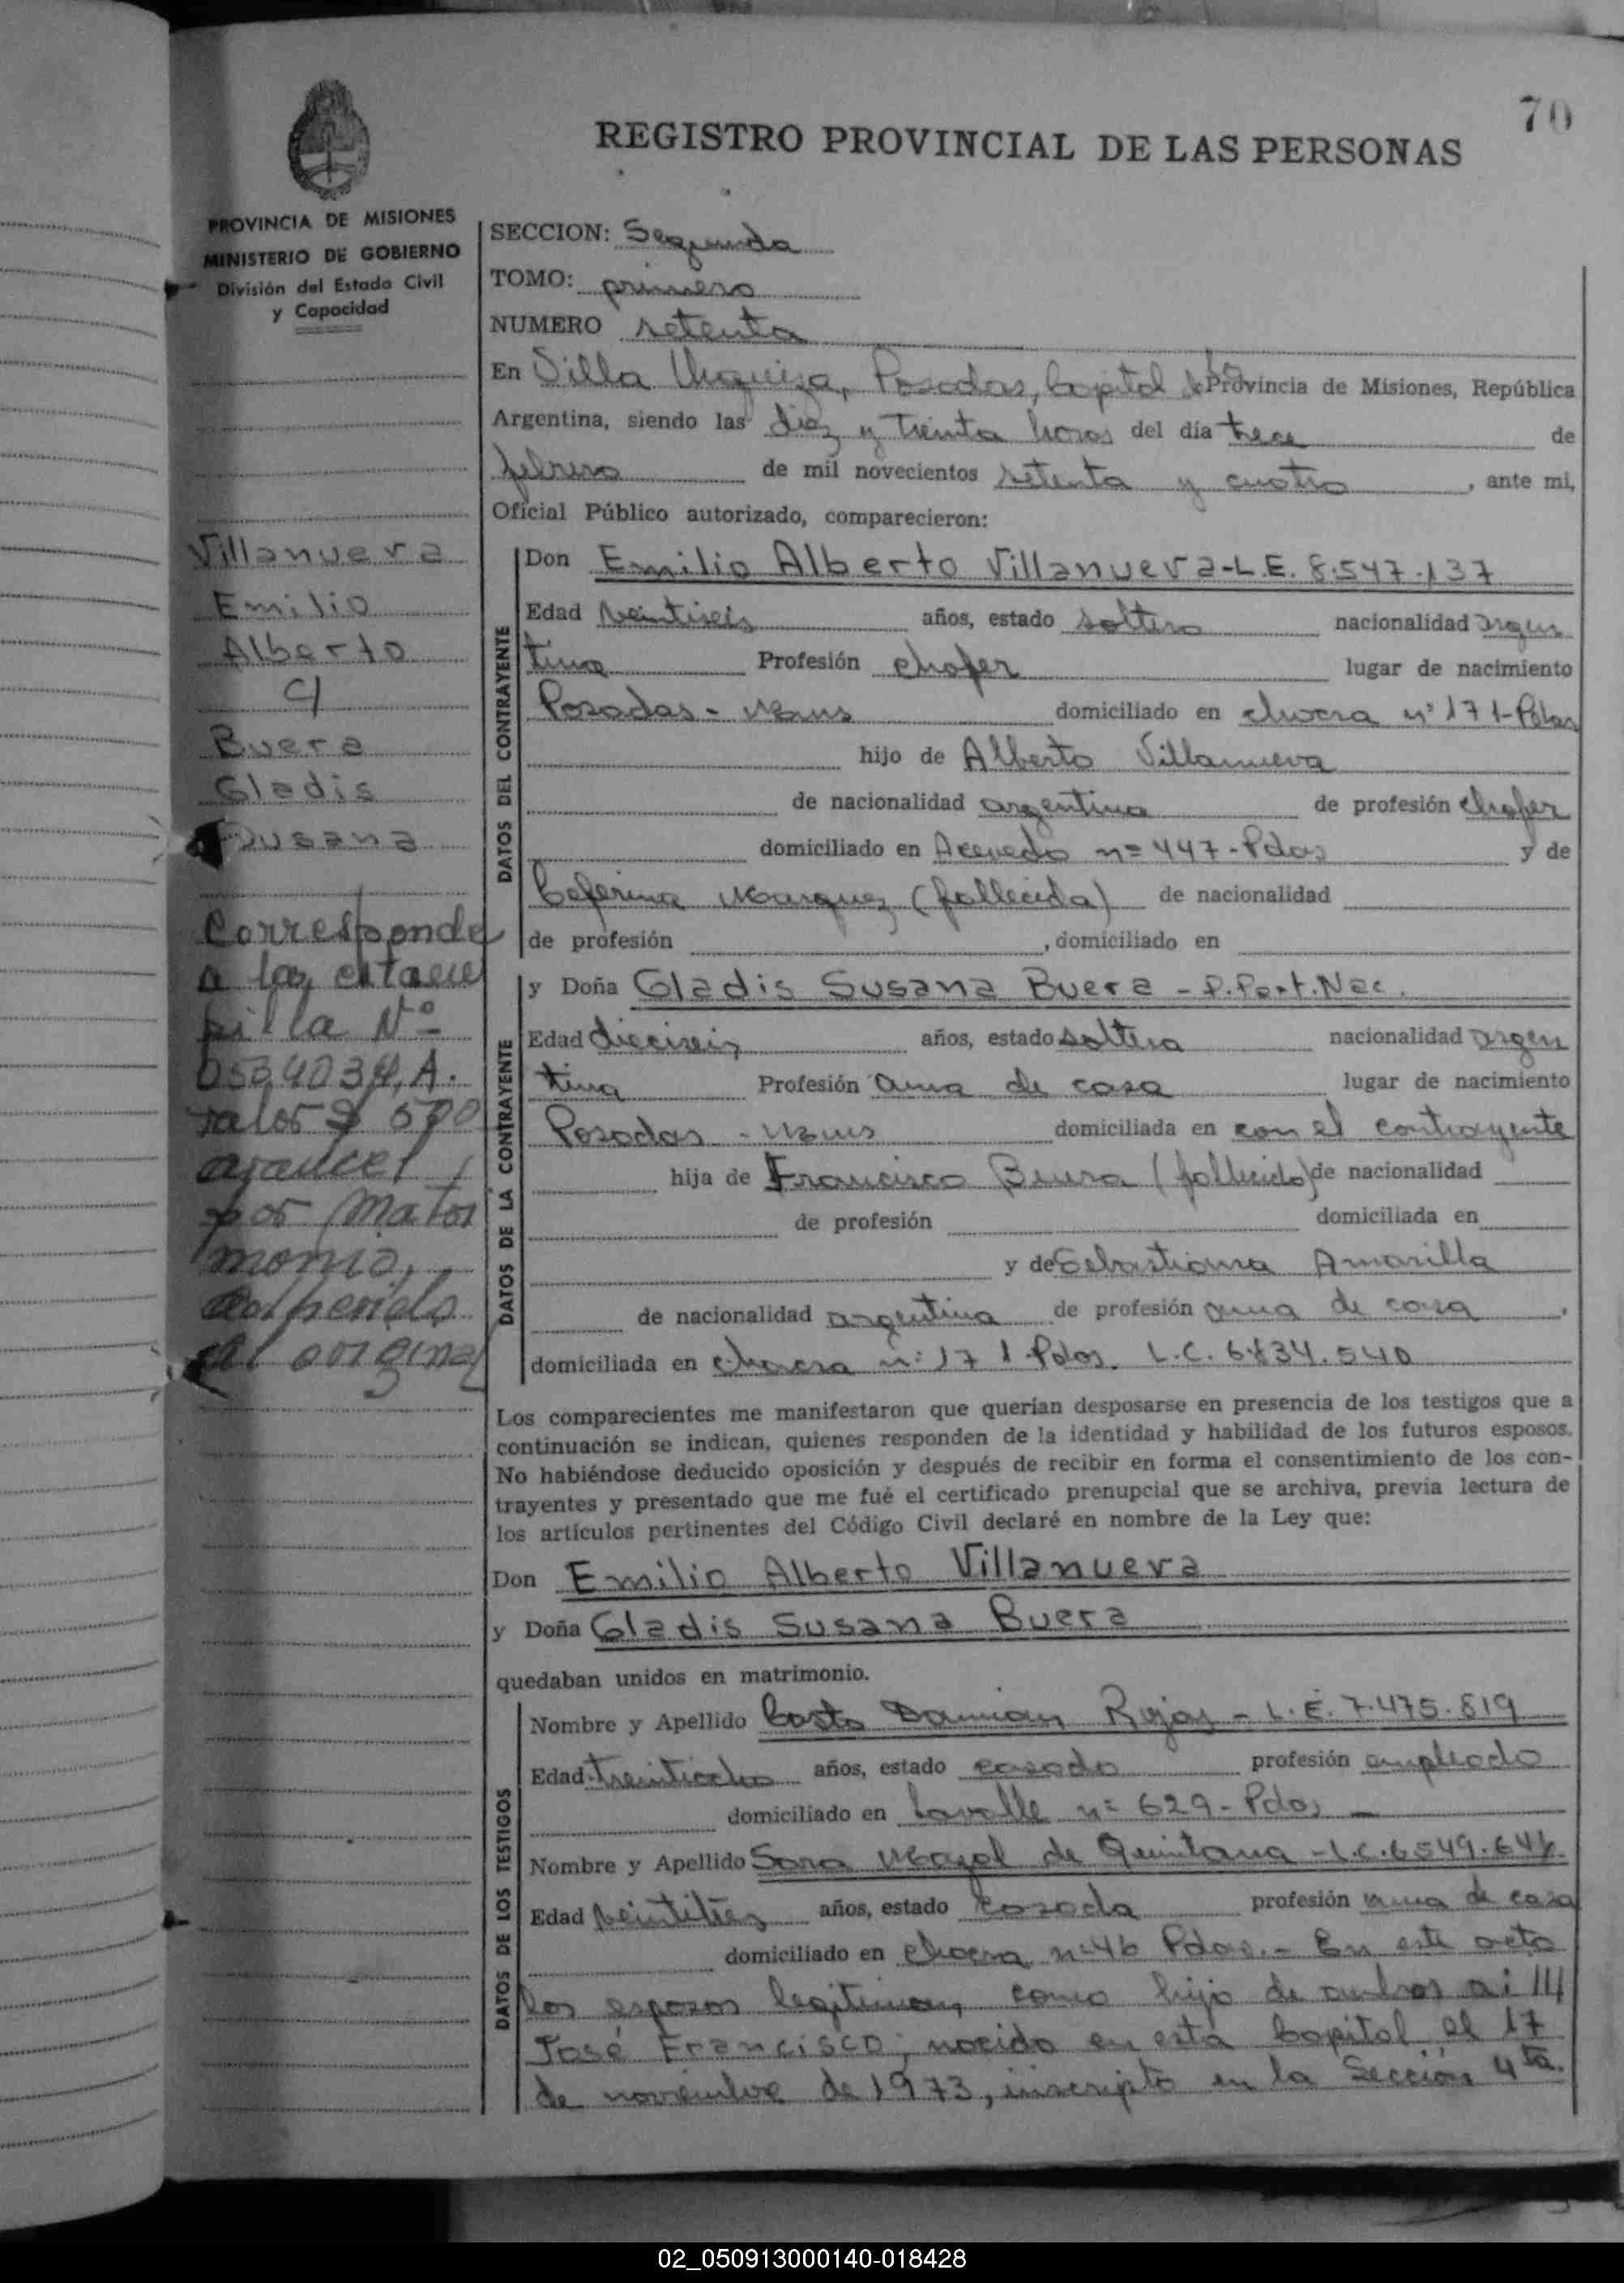 70
REGISTRO PROVINCIAL DE LAS PERSONAS
PROVINCIA DE MISIONES
MINISTERIO DE GOBIERNO
División del Estado Civil
y Capacidad
SECCION: Segunda
TOMO: primero
NUMERO setenta
En Villa Urquiza, Posadas, Capital de la Provincia de Misiones, República
Argentina, siendo las diez y treinta horas del día trece de
febrero de mil novecientos setenta y cuatro, ante mi,
Oficial Público autorizado, comparecieron:
Villanueva
Emilio
Alberto
c/
Buera
Gladis
Susana
Corresponde
a la estam
pilla Nº
0534034, A.
valor $ 500
arancel
por Matri
monio,
el original
DATOS DEL CONTRAYENTE
Don Emilio Alberto Villanueva-L.E. 8.547.137
Edad veintiseis años, estado soltero nacionalidad argen
tina Profesión chofer lugar de nacimiento
Posadas - Mnes domiciliado en chacra nº 171-Pdas
hijo de Alberto Villanueva
de nacionalidad argentina de profesión chofer
domiciliado en Acevedo nº 447-Pdas y de
Ceferina Marquez (fallecida) de nacionalidad
de profesión , domiciliado en
DATOS DE LA CONTRAYENTE
y Doña Gladis Susana Buera - P.Part.Nac.
Edad dieciseis años, estado soltera nacionalidad argen
tina Profesión ama de casa lugar de nacimiento
Posadas - Mnes domiciliada en con el contrayente
hija de Francisco Buera (fallecido) de nacionalidad
de profesión domiciliada en
y de Sebastiana Amarilla
de nacionalidad argentina de profesión ama de casa ,
domiciliada en chacra nº 171 Pdas. L.C. 6.834.540
Los comparecientes me manifestaron que querían desposarse en presencia de los testigos que a
continuación se indican, quienes responden de la identidad y habilidad de los futuros esposos.
No habiéndose deducido oposición y después de recibir en forma el consentimiento de los con-
trayentes y presentado que me fué el certificado prenupcial que se archiva, previa lectura de
los artículos pertinentes del Código Civil declaré en nombre de la Ley que:
Don Emilio Alberto Villanueva
y Doña Gladis Susana Buera
quedaban unidos en matrimonio.
DATOS DE LOS TESTIGOS
Nombre y Apellido Casto Damian Rojas - L.E. 7.475.819
Edad treintiocho años, estado casado profesión empleado
domiciliado en Lavalle nº 629-Pdas
Nombre y Apellido Sara Mayol de Quintana - L.C. 6.549.646
Edad veintitres años, estado casada profesión ama de casa
domiciliado en chacra nº 46 Pdas.- En este acto
los esposos legitiman como hijo de ambos a: ///
José Francisco; nacido en esta Capital el 17
de noviembre de 1973, inscripto en la Sección 4ta.
02_050913000140-018428